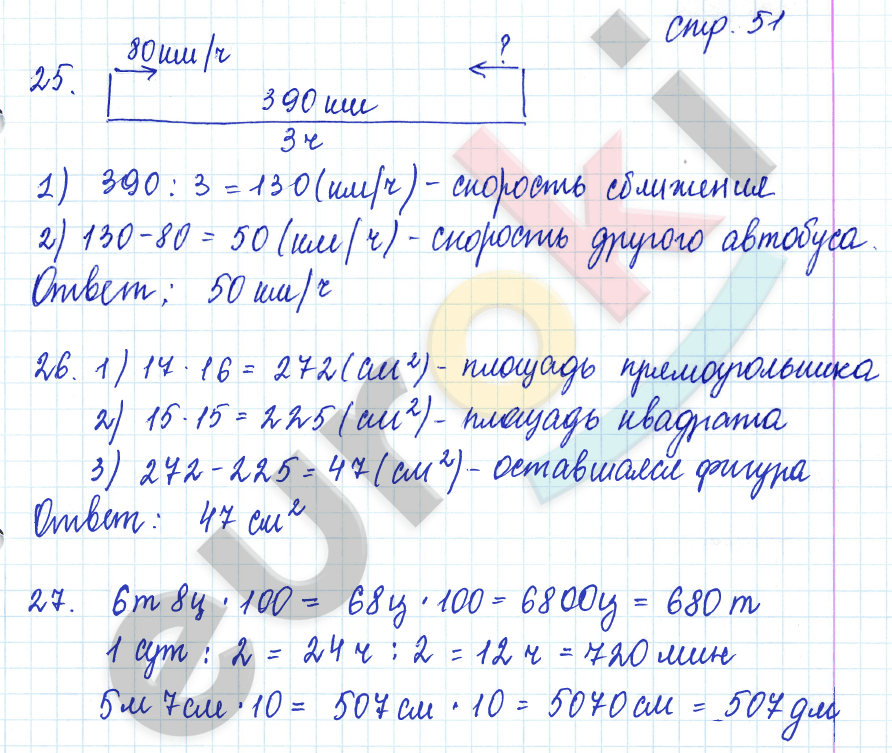 стр. 51
80 км/ч ?
25.
390 км
3 ч
1) 390 : 3 = 130 (км/ч) - скорость сближения
2) 130 - 80 = 50 (км/ч) - скорость другого автобуса.
Ответ: 50 км/ч
26. 1) 17 · 16 = 272 (см²) - площадь прямоугольника
2) 15 · 15 = 225 (см²) - площадь квадрата
3) 272 - 225 = 47 (см²) - оставшаяся фигура
Ответ: 47 см²
27. 6т 8ц · 100 = 68ц · 100 = 6800ц = 680 т
1 сут : 2 = 24 ч : 2 = 12 ч = 720 мин
5м 7см · 10 = 507 см · 10 = 5070 см = 507 дм
euroki